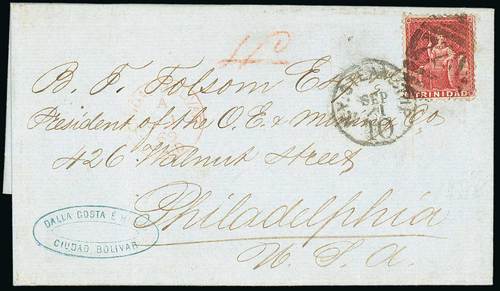 TRINIDAD
B. F. Folsom Esq
President of the O. E. & Mining Co
426 Walnut Street
Philadelphia
U. S. A.
SEP
21
10
DALLA COSTA É
CIUDAD BOLIVAR